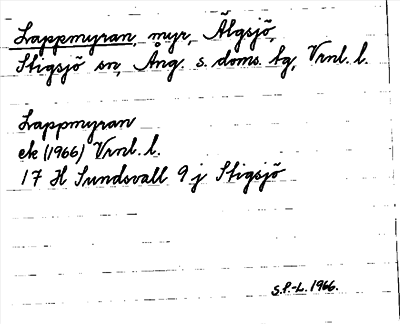 Lappmyran, myr, Älgsjö,
Stigsjö sn, Ång. s. doms. tg, Vrnl. l.
Lappmyran
ek (1966) Vrnl. l.
17 H Sundsvall 9 j Stigsjö
S.P.-L. 1966.